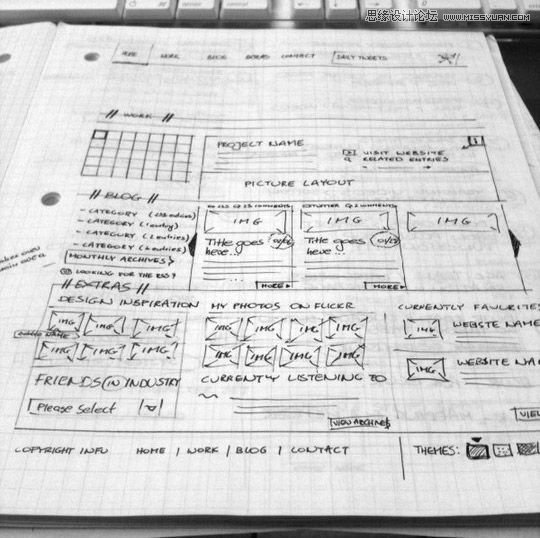 思缘设计论坛 WWW.MISSYUAN.COM
HOME WORK BLOG EXTRAS CONTACT DAILY TWEETS
// WORK //
PROJECT NAME
VISIT WEBSITE
RELATED ENTRIES
PICTURE LAYOUT
// BLOG //
- CATEGORY
- CATEGORY
- CATEGORY
- CATEGORY
MONTHLY ARCHIVES
LOOKING FOR THE RSS?
COMMENTS
IMG
Title goes here...
MORE
COMMENTS
IMG
Title goes here...
MORE
IMG
// EXTRAS //
DESIGN INSPIRATION
IMG IMG IMG
IMG IMG IMG
FRIENDS IN INDUSTRY
Please Select
MY PHOTOS ON FLICKR
IMG IMG IMG IMG
IMG IMG IMG IMG
CURRENTLY LISTENING TO
VIEW ARCHIVES
CURRENTLY FAVOURITES
IMG WEBSTE NAME
IMG WEBSITE NA
VIE
COPYRIGHT INFO HOME | WORK | BLOG | CONTACT
THEMES: